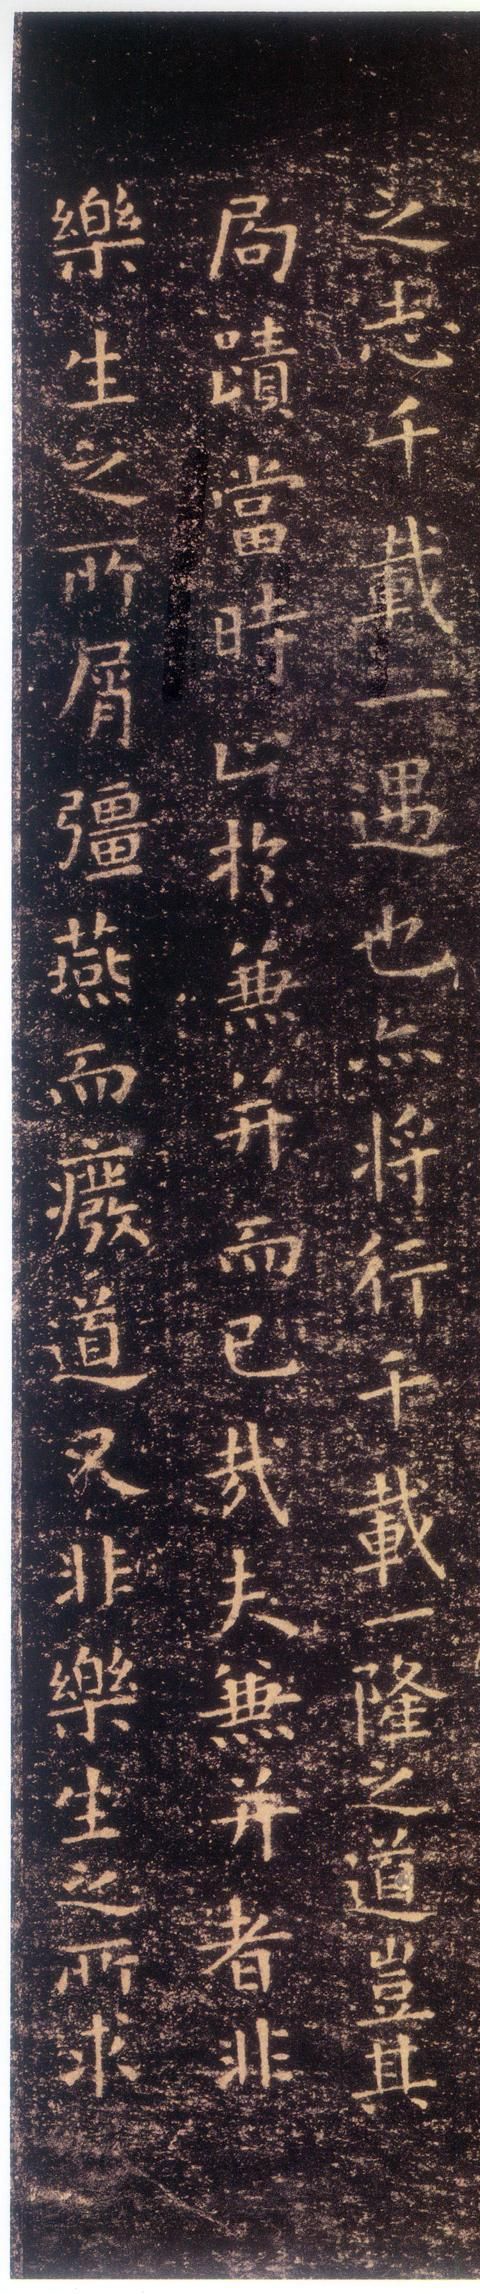 之志千載一遇也亦將行千載一隆之道豈其
局蹟當時止於兼并而已哉夫兼并者非
樂生之所屑彊燕而廢道又非樂生之所求